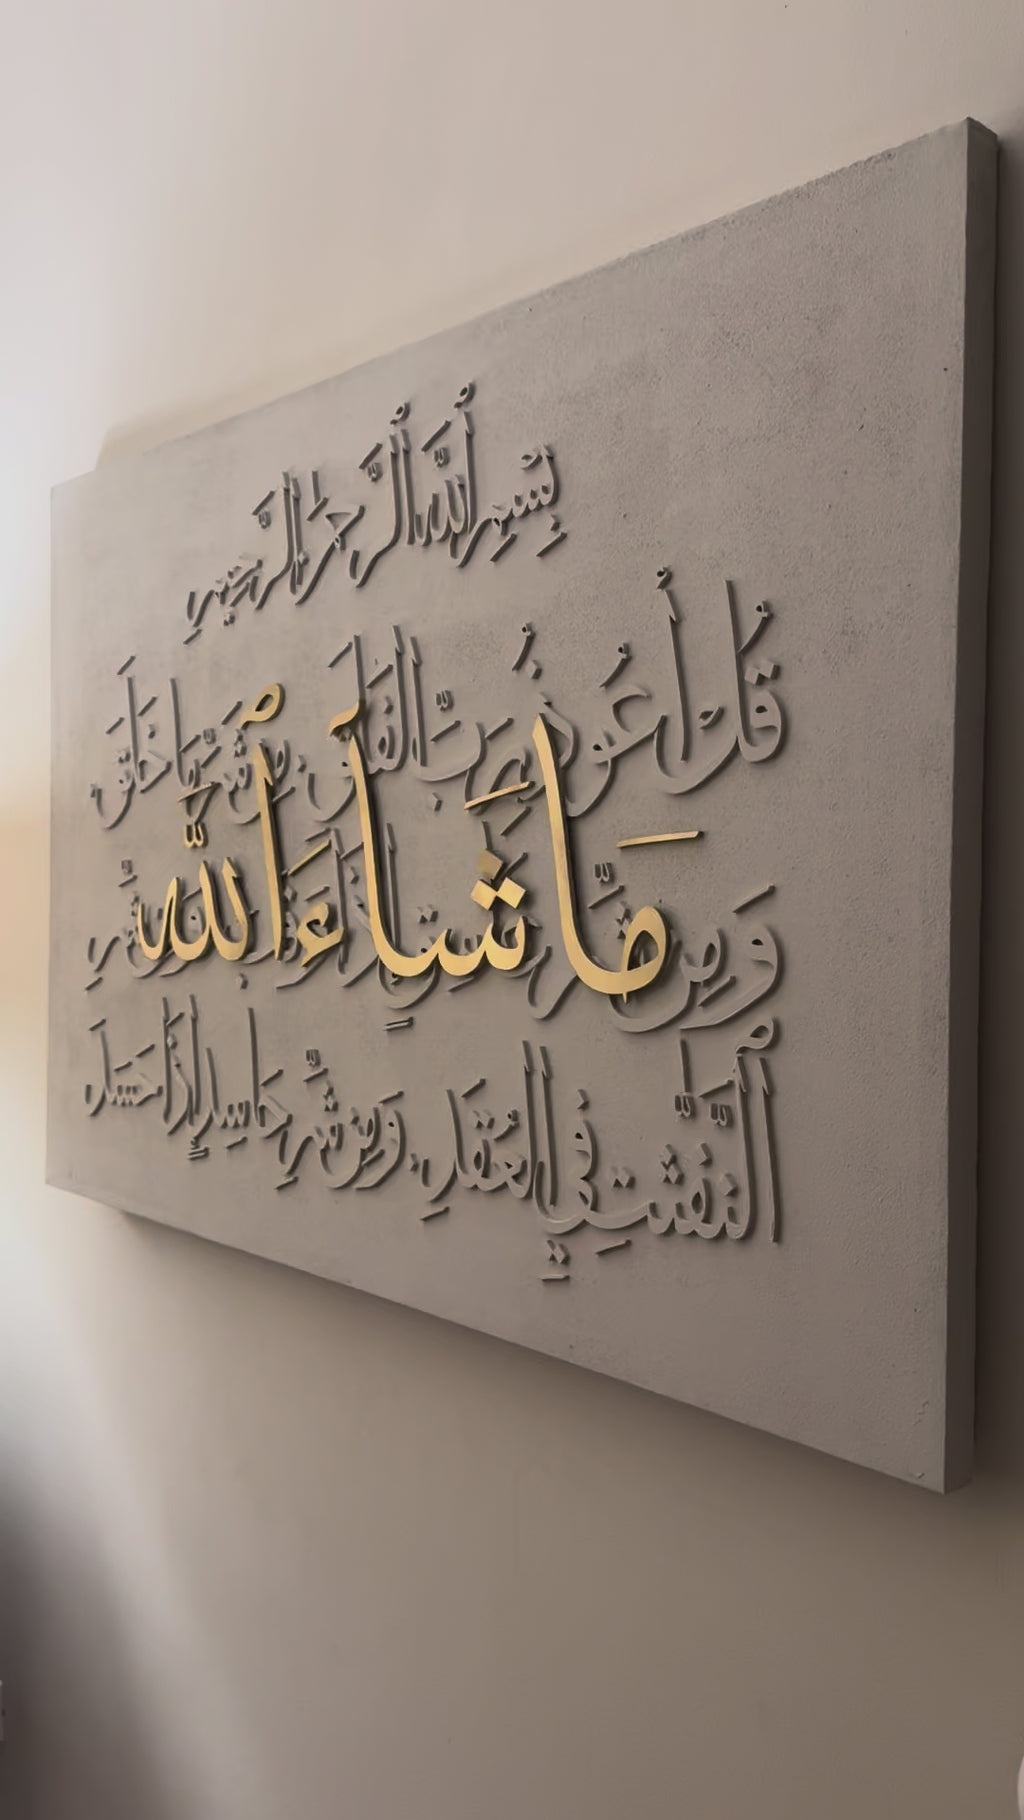 بِسْمِ ٱللَّهِ ٱلرَّحْمَٰنِ ٱلرَّحِيمِ
قُلْ أَعُوذُ بِرَبِّ الْفَلَقِ مِن شَرِّ مَا خَلَقَ
مَا شَاءَ ٱللَّهُ
وَمِن شَرِّ غَاسِقٍ إِذَا وَقَبَ وَمِن شَرِّ
ٱلنَّفَّٰثَٰتِ فِي الْعُقَدِ وَمِن شَرِّ حَاسِدٍ إِذَا حَسَدَ